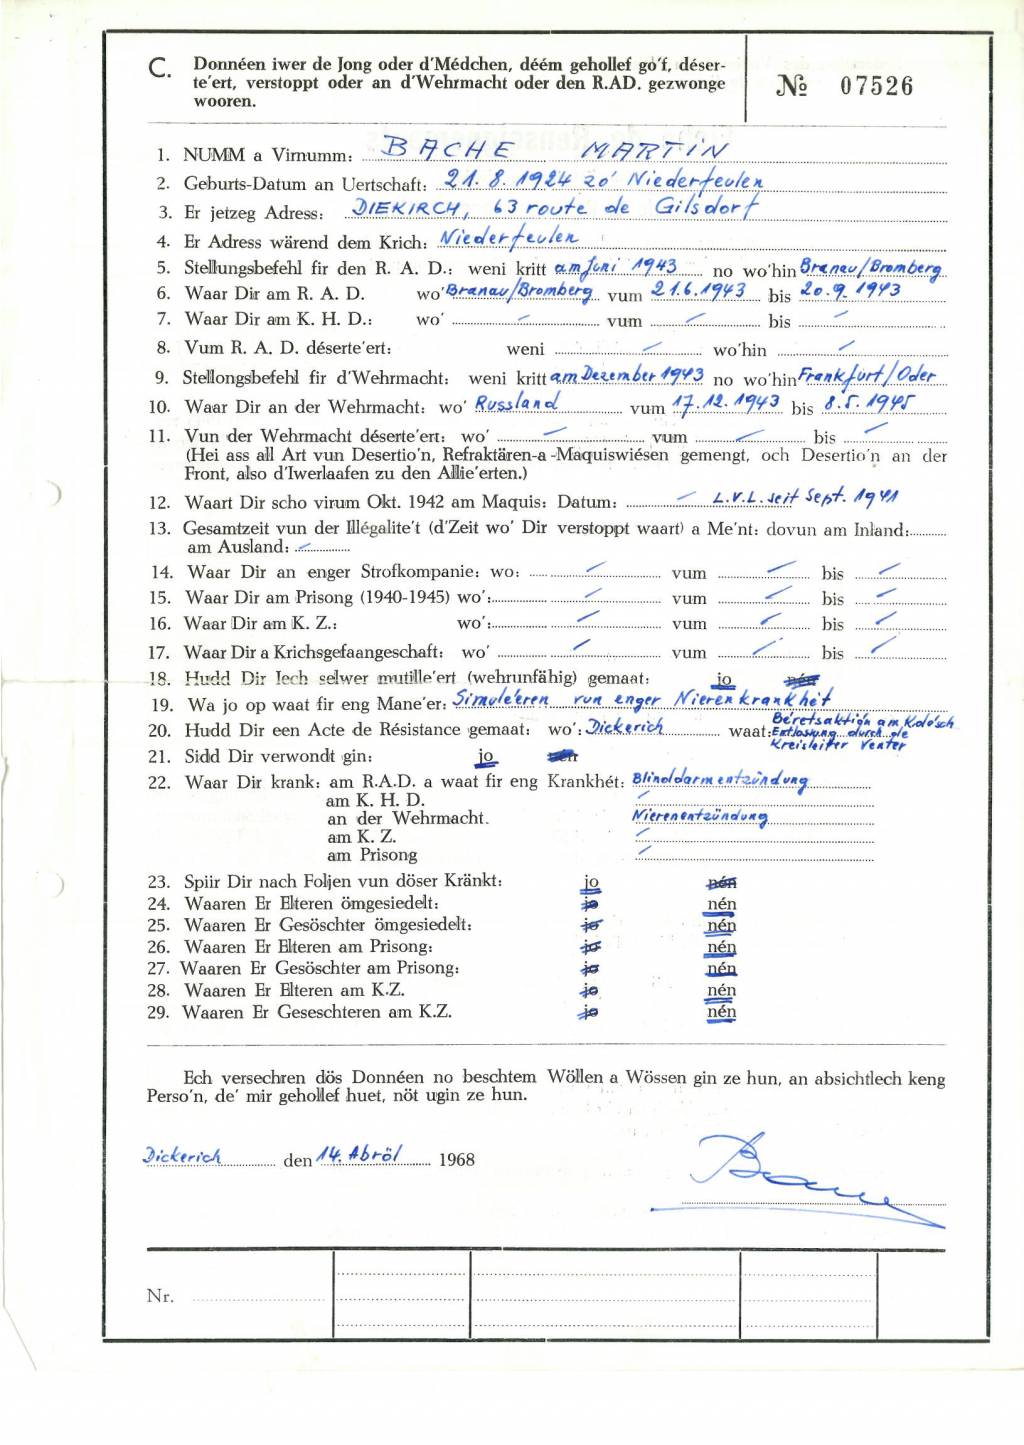 C. Donnéen iwer de Jong oder d'Médchen, déém gehollef go'f, déser-
te'ert, verstoppt oder an d'Wehrmacht oder den R.AD. gezwonge
wooren.
№ 07526
1. NUMM a Virnumm: BACHE MARTIN
2. Geburts-Datum an Uertschaft: 21. 8. 1924 zo' Niederfeulen
3. Er jetzeg Adress: DIEKIRCH, 63 route de Gilsdorf
4. Er Adress wärend dem Krich: Niederfeulen
5. Stellungsbefehl fir den R. A. D.: weni kritt am Juni 1943 no wo'hin Branau/Bromberg
6. Waar Dir am R. A. D. wo' Branau/Bromberg vum 21.6.1943 bis 20.9.1943
7. Waar Dir am K. H. D.: wo' vum bis
8. Vum R. A. D. déserte'ert: weni wo'hin
9. Stellongsbefehl fir d'Wehrmacht: weni kritt am Dezember 1943 no wo'hin Frankfurt/Oder
10. Waar Dir an der Wehrmacht: wo' Russland vum 17.12.1943 bis 8.5.1945
11. Vun der Wehrmacht déserte'ert: wo' vum bis
(Hei ass all Art vun Desertio'n, Refraktären-a-Maquiswiésen gemengt, och Desertio'n an der
Front, also d'Iwerlaafen zu den Allie'erten.)
12. Waart Dir scho virum Okt. 1942 am Maquis: Datum: L.V.L. seit Sept. 1941
13. Gesamtzeit vun der Illégalite't (d'Zeit wo' Dir verstoppt waart) a Me'nt: dovun am Inland:
am Ausland:
14. Waar Dir an enger Strofkompanie: wo: vum bis
15. Waar Dir am Prisong (1940-1945) wo': vum bis
16. Waar Dir am K. Z.: wo': vum bis
17. Waar Dir a Krichsgefaangeschaft: wo' vum bis
18. Hudd Dir Iech selwer mutille'ert (wehrunfähig) gemaat: jo nén
19. Wa jo op waat fir eng Mane'er: Simule'eren vun enger Nierenkrankhét
20. Hudd Dir een Acte de Résistance gemaat: wo': Dickerich waat: Béretsaktio'n am Kolo'sch
Entlosung durch de
Kreisleiter Venter
21. Sidd Dir verwondt gin: jo nén
22. Waar Dir krank: am R.A.D. a waat fir eng Krankhét: Blinddarmentzündung
am K. H. D.
an der Wehrmacht. Nierenentzündung
am K. Z.
am Prisong
23. Spiir Dir nach Foljen vun döser Kränkt: jo nén
24. Waaren Er Elteren ömgesiedelt: jo nén
25. Waaren Er Gesöschter ömgesiedelt: jo nén
26. Waaren Er Elteren am Prisong: jo nén
27. Waaren Er Gesöschter am Prisong: jo nén
28. Waaren Er Elteren am K.Z. jo nén
29. Waaren Er Geseschteren am K.Z. jo nén
Ech versechren dös Donnéen no beschtem Wöllen a Wössen gin ze hun, an absichtlech keng
Perso'n, de' mir gehollef huet, nöt ugin ze hun.
Dickerich den 14. Abröl 1968
Nr.